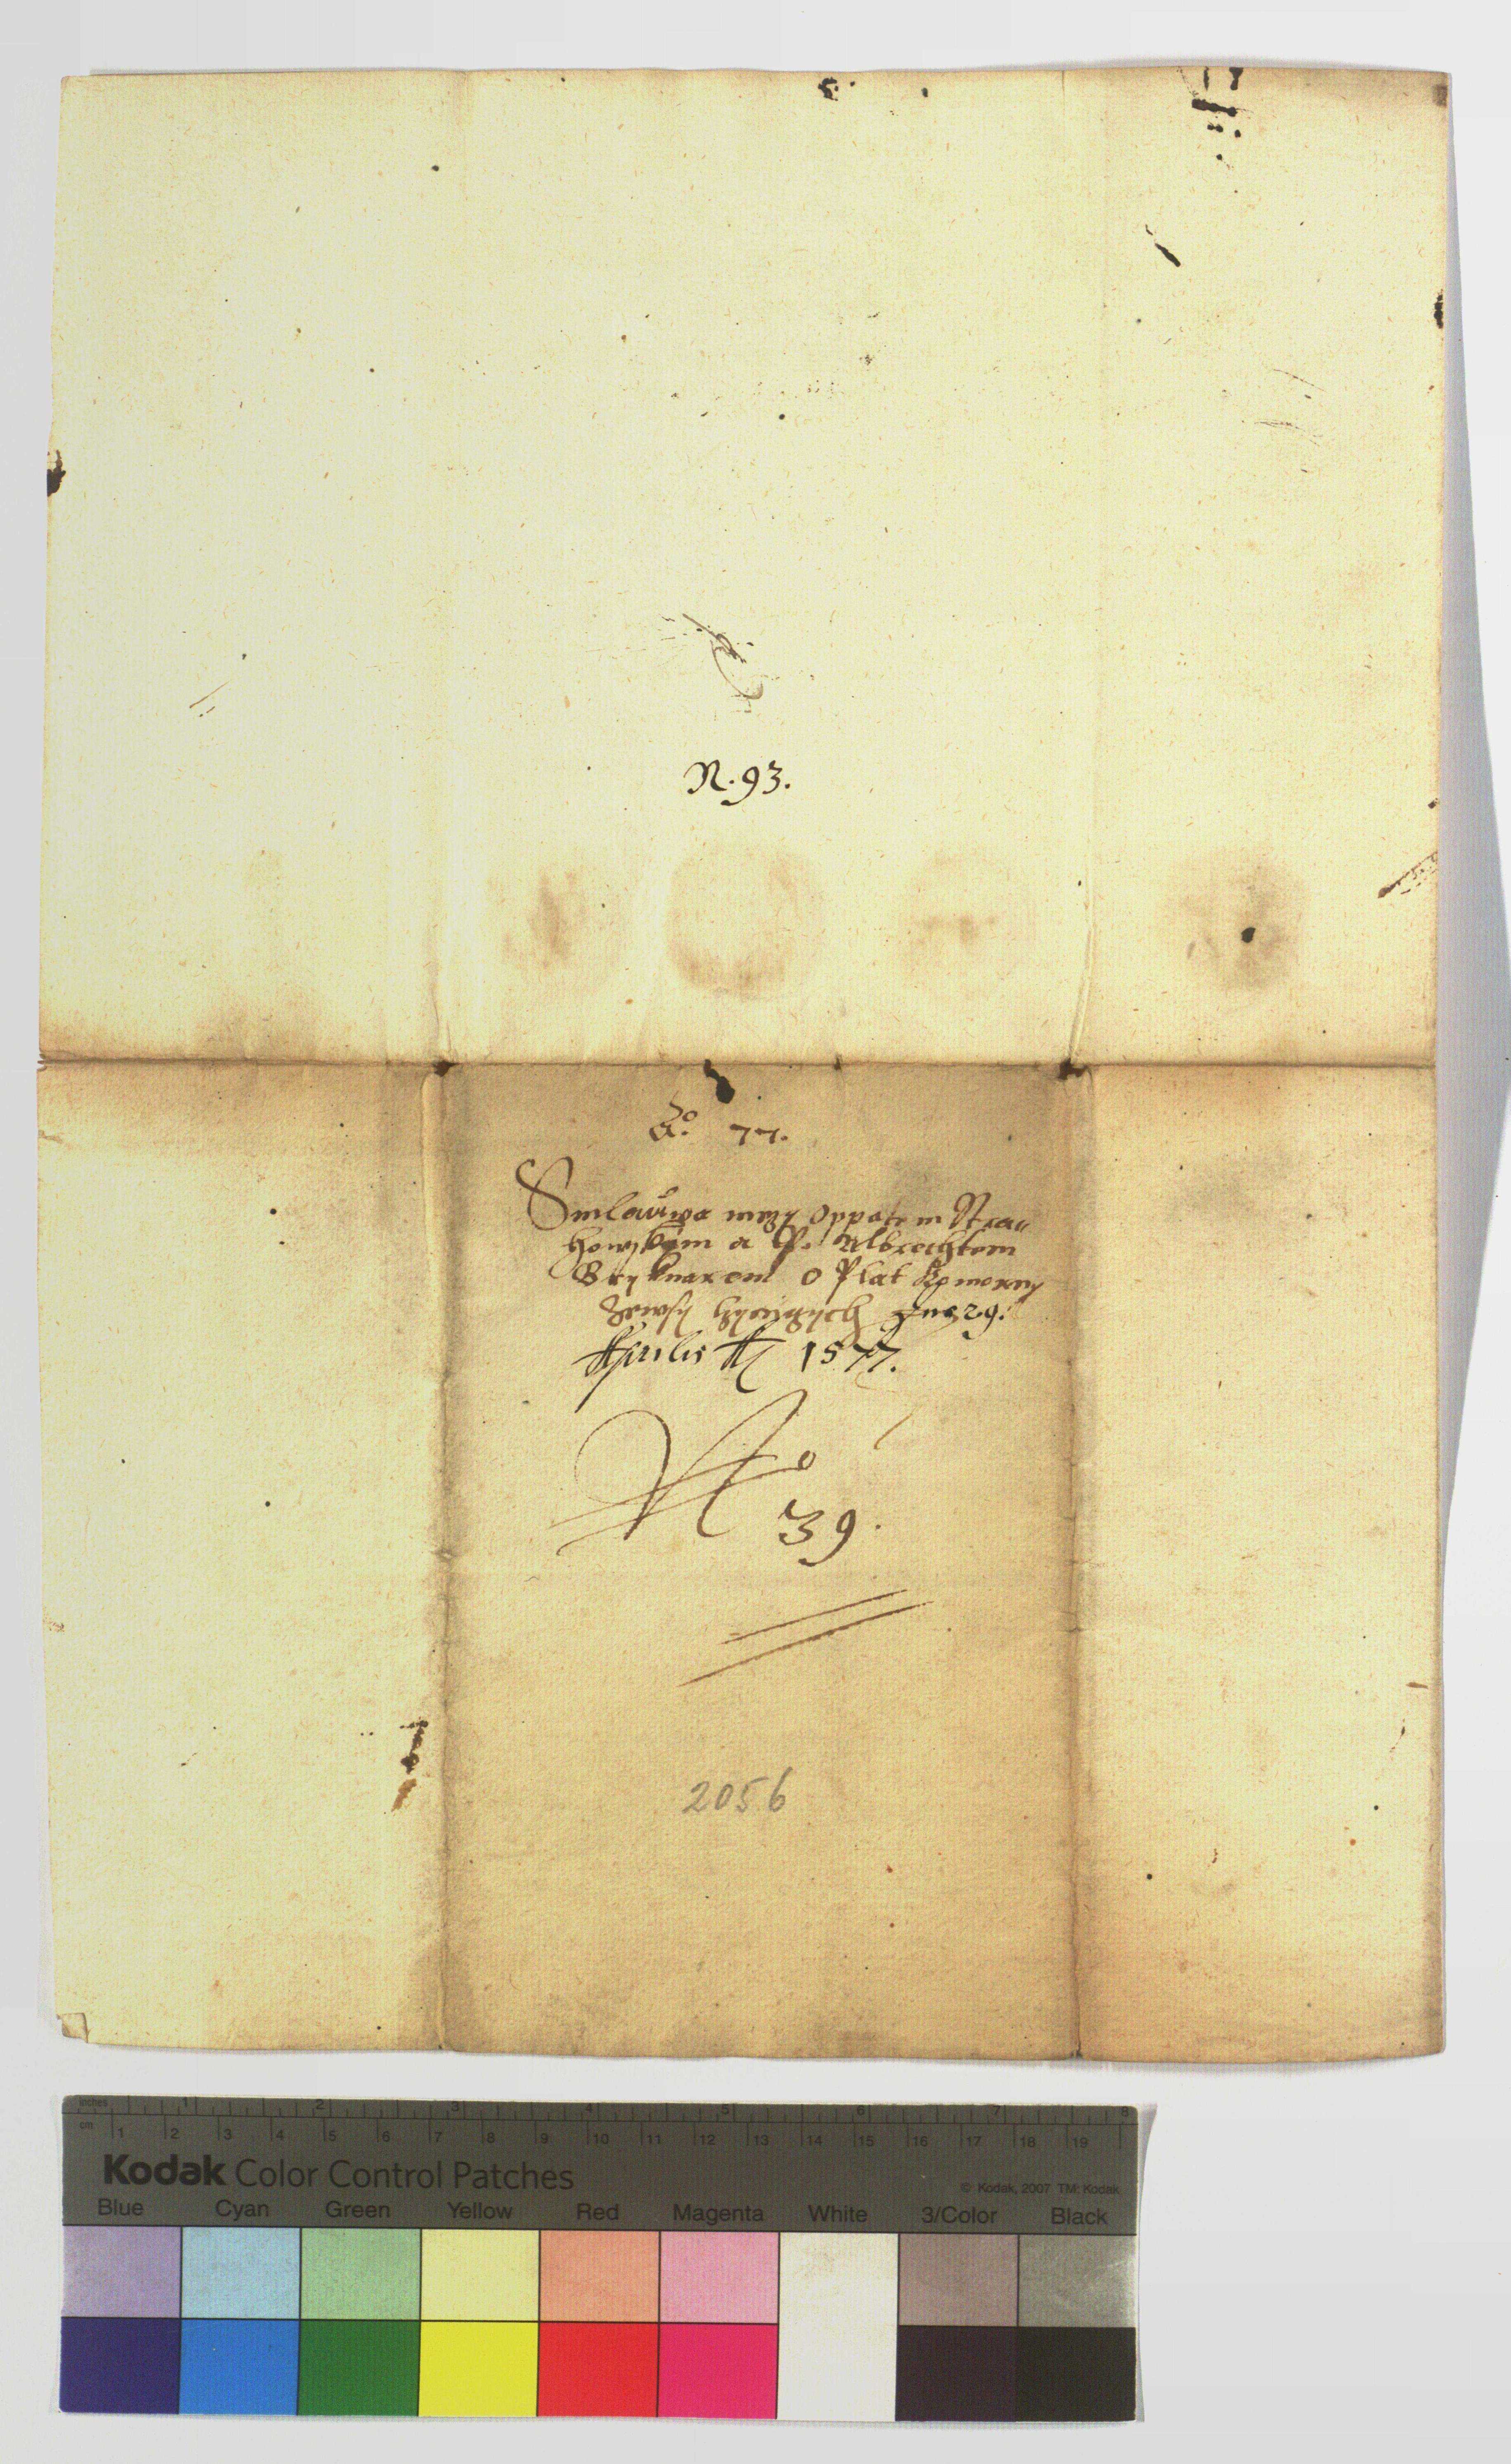 N. 93.
Ao. 77.
Smlauwa mezy Oppatem Stra„
howskym a P. Albrechtem
Bryknarem o Plat Komorny
Zewsy 29.
Aprilis A 1577.
No
39.
2056
Inches 1 2 3 4 5 6 7 8
cm 1 2 3 4 5 6 7 8 9 10 11 12 13 14 15 16 17 18 19
Kodak Color Control Patches
© Kodak, 2007 TM: Kodak
Blue Cyan Green Yellow Red Magenta White 3/Color Black